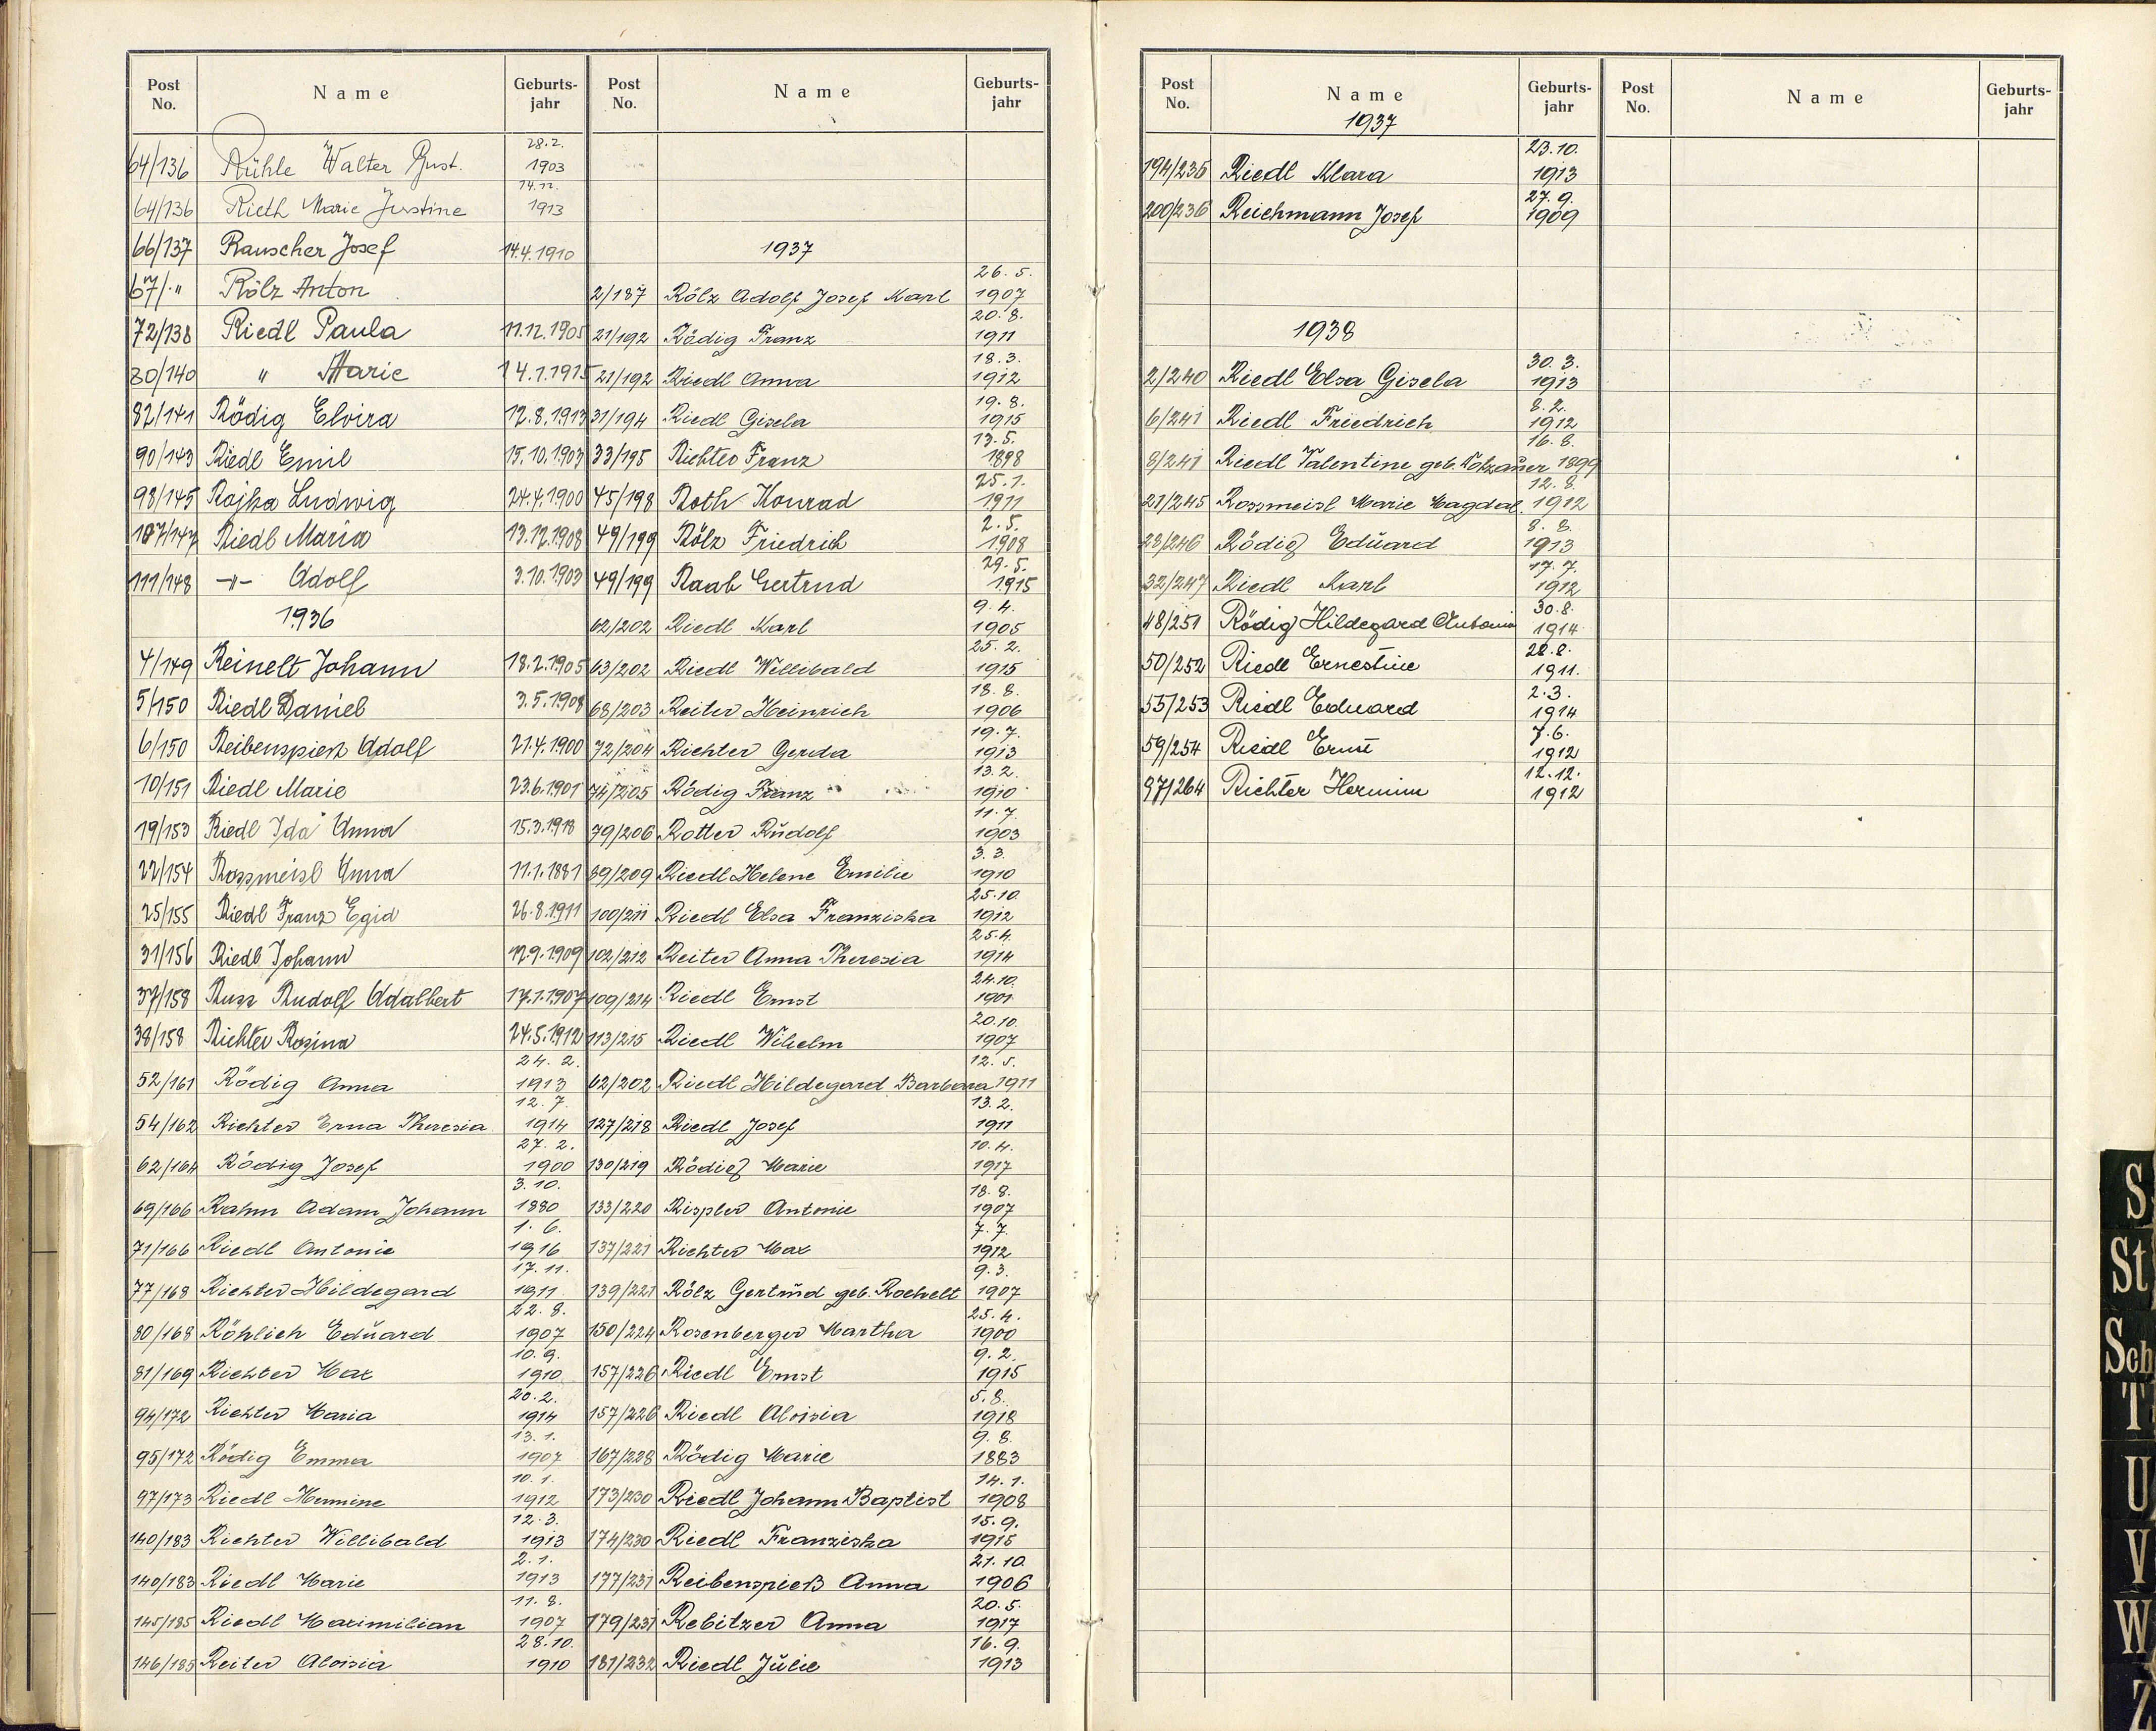 Post No. Name Geburts-jahr
64/136 Rühle Walter Gust. 28.2. 1903
64/136 Rieth Marie Justine 14.12. 1913
66/137 Rauscher Josef 14.4.1910
67/·" Rölz Anton
72/138 Riedl Paula 11.12.1905
80/140 " Marie 14.1.1915
82/141 Rödig Elvira 12.8.1913
90/143 Riedl Emil 15.10.1903
98/145 Rojka Ludwig 24.4.1900
107/147 Riedl Maria 13.12.1908
111/148 -"- Adolf 3.10.1903
1936
4/149 Reinelt Johann 18.2.1905
5/150 Riedl Daniel 3.5.1908
6/150 Reibenspiess Adolf 21.4.1900
10/151 Riedl Marie 23.6.1901
19/153 Riedl Ida Anna 15.3.1918
22/154 Rossmeisl Anna 11.1.1881
25/155 Riedl Franz Egid 26.8.1911
31/156 Riedl Johann 17.9.1909
37/158 Russ Rudolf Adalbert 17.1.1907
38/158 Richter Rosina 24.5.1912
52/161 Rödig Anna 24.2. 1913
54/162 Richter Erna Theresia 12.7. 1914
62/164 Rödig Josef 27.2. 1900
69/166 Rahm Adam Johann 3.10. 1880
71/166 Riedl Antonie 1.6. 1916
77/168 Richter Hildegard 17.11. 1911
80/168 Röhlich Eduard 22.8. 1907
81/169 Richter Max 10.9. 1910
94/172 Richter Maria 20.2. 1914
95/172 Rödig Emma 13.1. 1907
97/173 Riedl Hermine 10.1. 1912
140/183 Richter Willibald 12.3. 1913
140/183 Riedl Marie 2.1. 1913
145/185 Riedl Maximilian 11.8. 1907
146/185 Reiter Aloisia 28.10. 1910
Post No. Name Geburts-jahr
1937
2/187 Rölz Adolf Josef Karl 26.5. 1907
21/192 Rödig Franz 20.8. 1911
21/192 Riedl Anna 18.3. 1912
31/194 Riedl Gisela 19.8. 1915
33/195 Richter Franz 13.5. 1898
45/198 Roth Konrad 25.1. 1911
49/199 Rölz Friedrich 2.5. 1908
49/199 Raab Gertrud 29.5. 1915
62/202 Riedl Karl 9.4. 1905
63/202 Riedl Willibald 25.2. 1915
68/203 Reiter Heinrich 18.8. 1906
72/204 Richter Gerda 19.7. 1913
74/205 Rödig Franz 13.2. 1910
79/206 Rotter Rudolf 11.7. 1903
89/209 Riedl Helene Emilie 3.3. 1910
100/211 Riedl Elsa Franziska 25.10. 1912
102/212 Reiter Anna Theresia 25.4. 1914
109/214 Riedl Ernst 24.10. 1901
113/215 Riedl Wihelm 20.10. 1907
62/202 Riedl Hildegard Barbara 12.5. 1911
127/218 Riedl Josef 13.2. 1911
130/219 Rödig Marie 10.4. 1917
133/220 Rispler Antonie 18.8. 1907
137/221 Richter Max 7.7. 1912
139/221 Rölz Gertrud geb. Rochelt 9.3. 1907
150/224 Rosenberger Martha 25.4. 1900
157/226 Riedl Ernst 9.2. 1915
157/226 Riedl Aloisia 5.8. 1918
167/228 Rödig Marie 9.8. 1883
173/230 Riedl Johann Baptist 14.1. 1908
174/230 Riedl Franziska 15.9. 1915
177/231 Reibenspieß Anna 21.10. 1906
179/231 Rebitzer Anna 20.5. 1917
181/232 Riedl Julie 16.9. 1913
Post No. Name Geburts-jahr
1937
194/235 Riedl Klara 23.10. 1913
200/236 Reichmann Josef 27.9. 1909
1938
2/240 Riedl Elsa Gisela 30.3. 1913
6/241 Riedl Friedrich 8.2. 1912
8/241 Riedl Valentine geb. 16.8. 1899
21/245 Rossmeisl Marie Magdal. 12.8. 1912
28/246 Rödig Eduard 8.8. 1913
32/247 Riedl Karl 17.7. 1912
48/251 Rödig Hildegard Antonia 30.8. 1914
50/252 Riedl Ernestine 28.8. 1911.
55/253 Riedl Eduard 2.3. 1914
59/254 Riedl Ernst 7.6. 1912
97/264 Richter Hermine 12.12. 1912
Post No. Name Geburts-jahr
S
St
Sch
T
U
V
W
Z